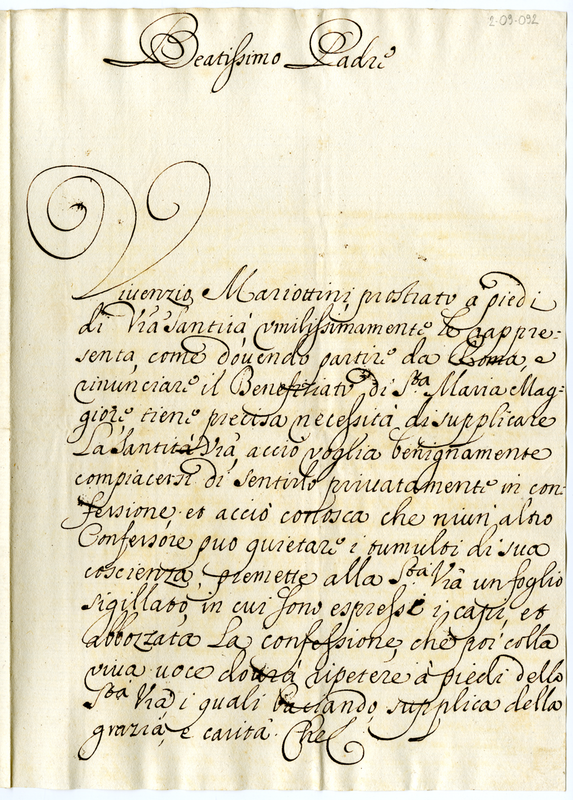 2-09-092
Beatissimo Padre
Viuenzio Mariottini prostrato à piedi
di Vrã Santità vmilissimamente le rappre=
senta come douendo partire da Roma, e
rinunciare il Benefiziato di Sta Maria Mag=
giore tiene precisa necessità di supplicare
La Santità Vrã acciò voglia benignamente
compiacersi di sentirlo priuatamente in con=
fessione et acciò conosca che niun altro
Confessore può quietare i tumulti di sua
coscienza, premette alla Stà Vrã un foglio
sigillato in cui sono espressi i capi, et
abbozzata La confessione che poi colla
viua voce dourà ripetere à piedi della
Stà Vrã i quali baciando supplica della
grazia, e carità. Che